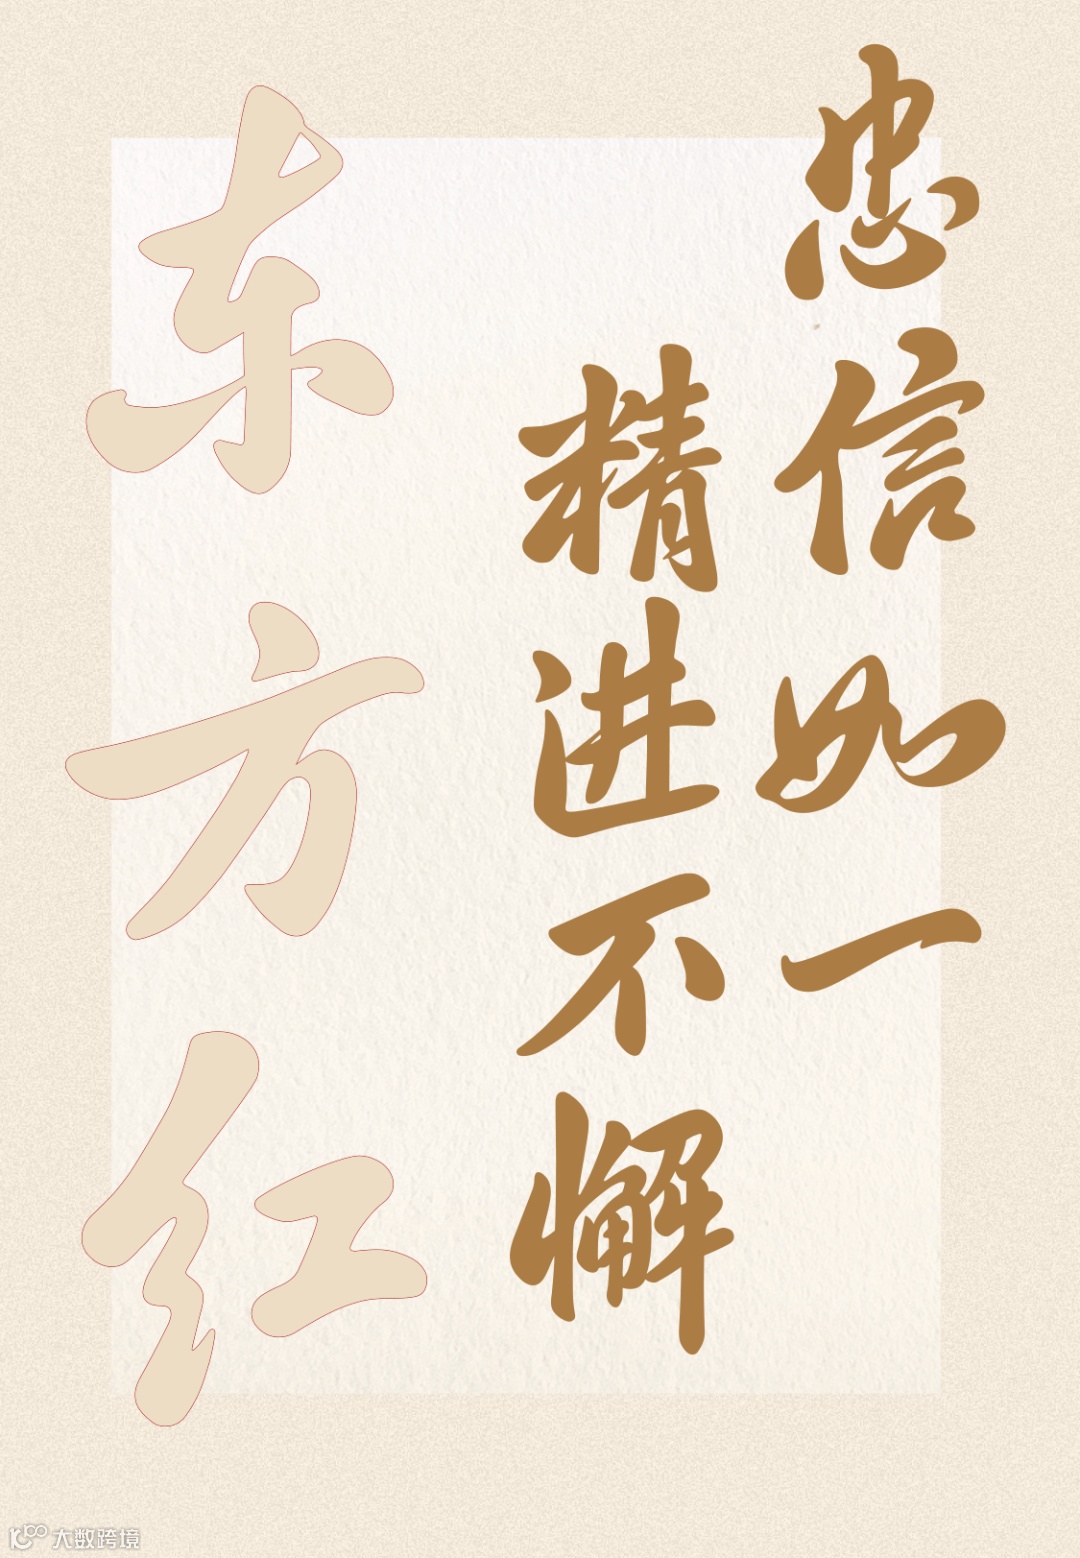 忠信如一
精进不懈
东方红
大数跨境